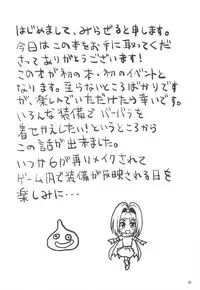 はじめまして、みらぜると申します。
今日は この本をお手に取ってくだ
さって ありがとうございます!
この本が初の本・初のイベントと
なります。至らないところばかりです
が、楽しんでいただけたら幸いです。
いろんな装備で バーバラを
着せかえしたい!というところから
この話が出来ました。
いつか6が再リメイクされて
ゲーム内で装備が反映される日を
楽しみに…